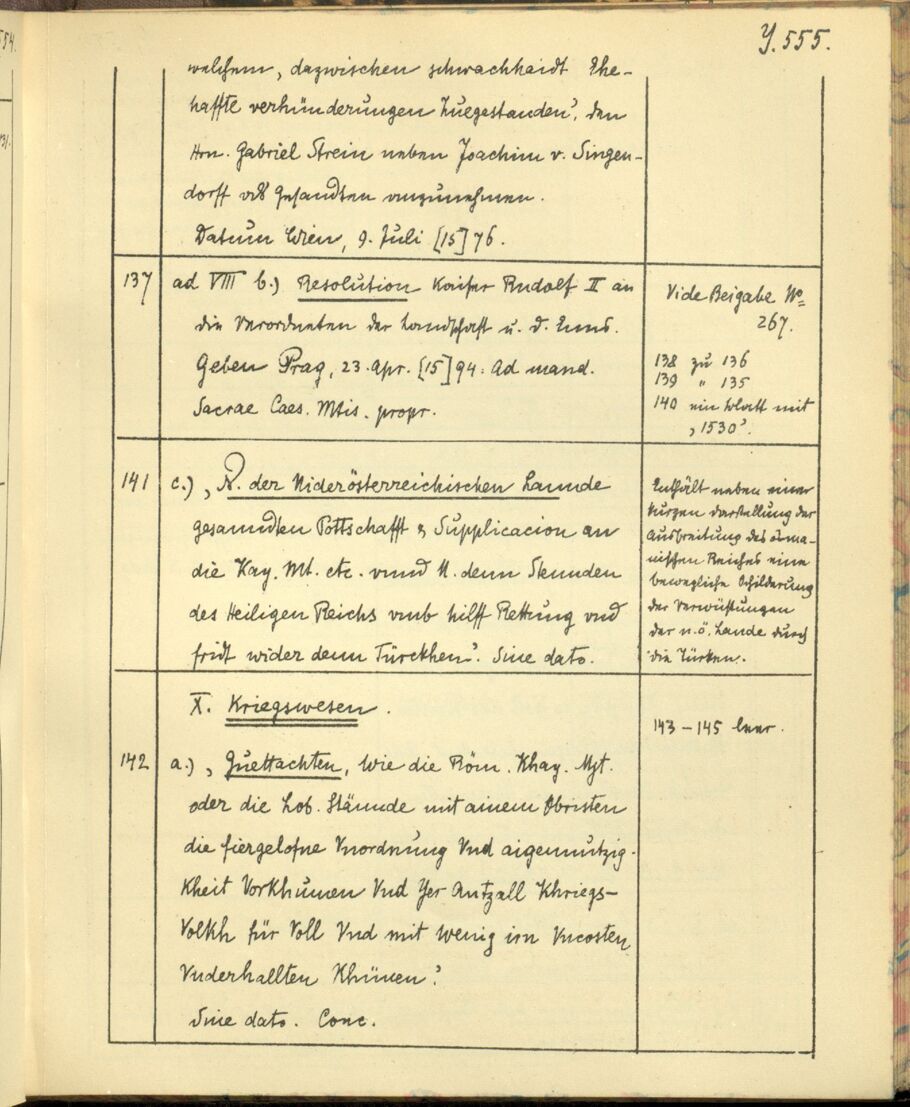 Y. 555.
welchem, dazwischen schwachhaidt Ehe-
haffte verhünderungen Zuegestanden', den
Hrn. Gabriel Strein neben Joachim v. Singen-
dorff als Gesandten anzunehmen.
Datum Wien, 9. Juli [15]76.
137 ad VIII b.) Resolution Kaiser Rudolf II an
die Verordneten der Landschaft u. d. Enns.
Geben Prag, 23. Apr. [15]94. Ad mand.
Sacrae Caes. Mtis. propr.
Vide Beigabe No
267.
138 zu 136
139 " 135
140 ein Blatt mit
‚1530'.
141 c.) ‚N. der Niderösterreichischen Lannde
gesanndten Pottschafft & Supplicacion an
die Kay. Mt. etc. vnnd N. denn Stennden
des Heiligen Reichs vmb hilff Rettung vnd
fridt wider denn Türckhen'. Sine dato.
Enthält neben einer
kurzen Darstellung der
Ausbreitung des osma-
nischen Reiches eine
bewegliche Schilderung
der Verwüstungen
der n. ö. Lande durch
die Türken.
X. Kriegswesen.
143 – 145 leer.
142 a.) ‚Guettachten, Wie die Röm. Khay. Mgt.
oder die Lob. Stännde mit ainem Obristen
die fiergelofne Vnordnung Vnd aigennutzig-
kheit Vorkhumen Vnd Yer Antzall Khriegs-
Volkh für Voll Vnd mit wenig irn Vncosten
Vnderhallten Khünen'.
Sine dato. Conc.